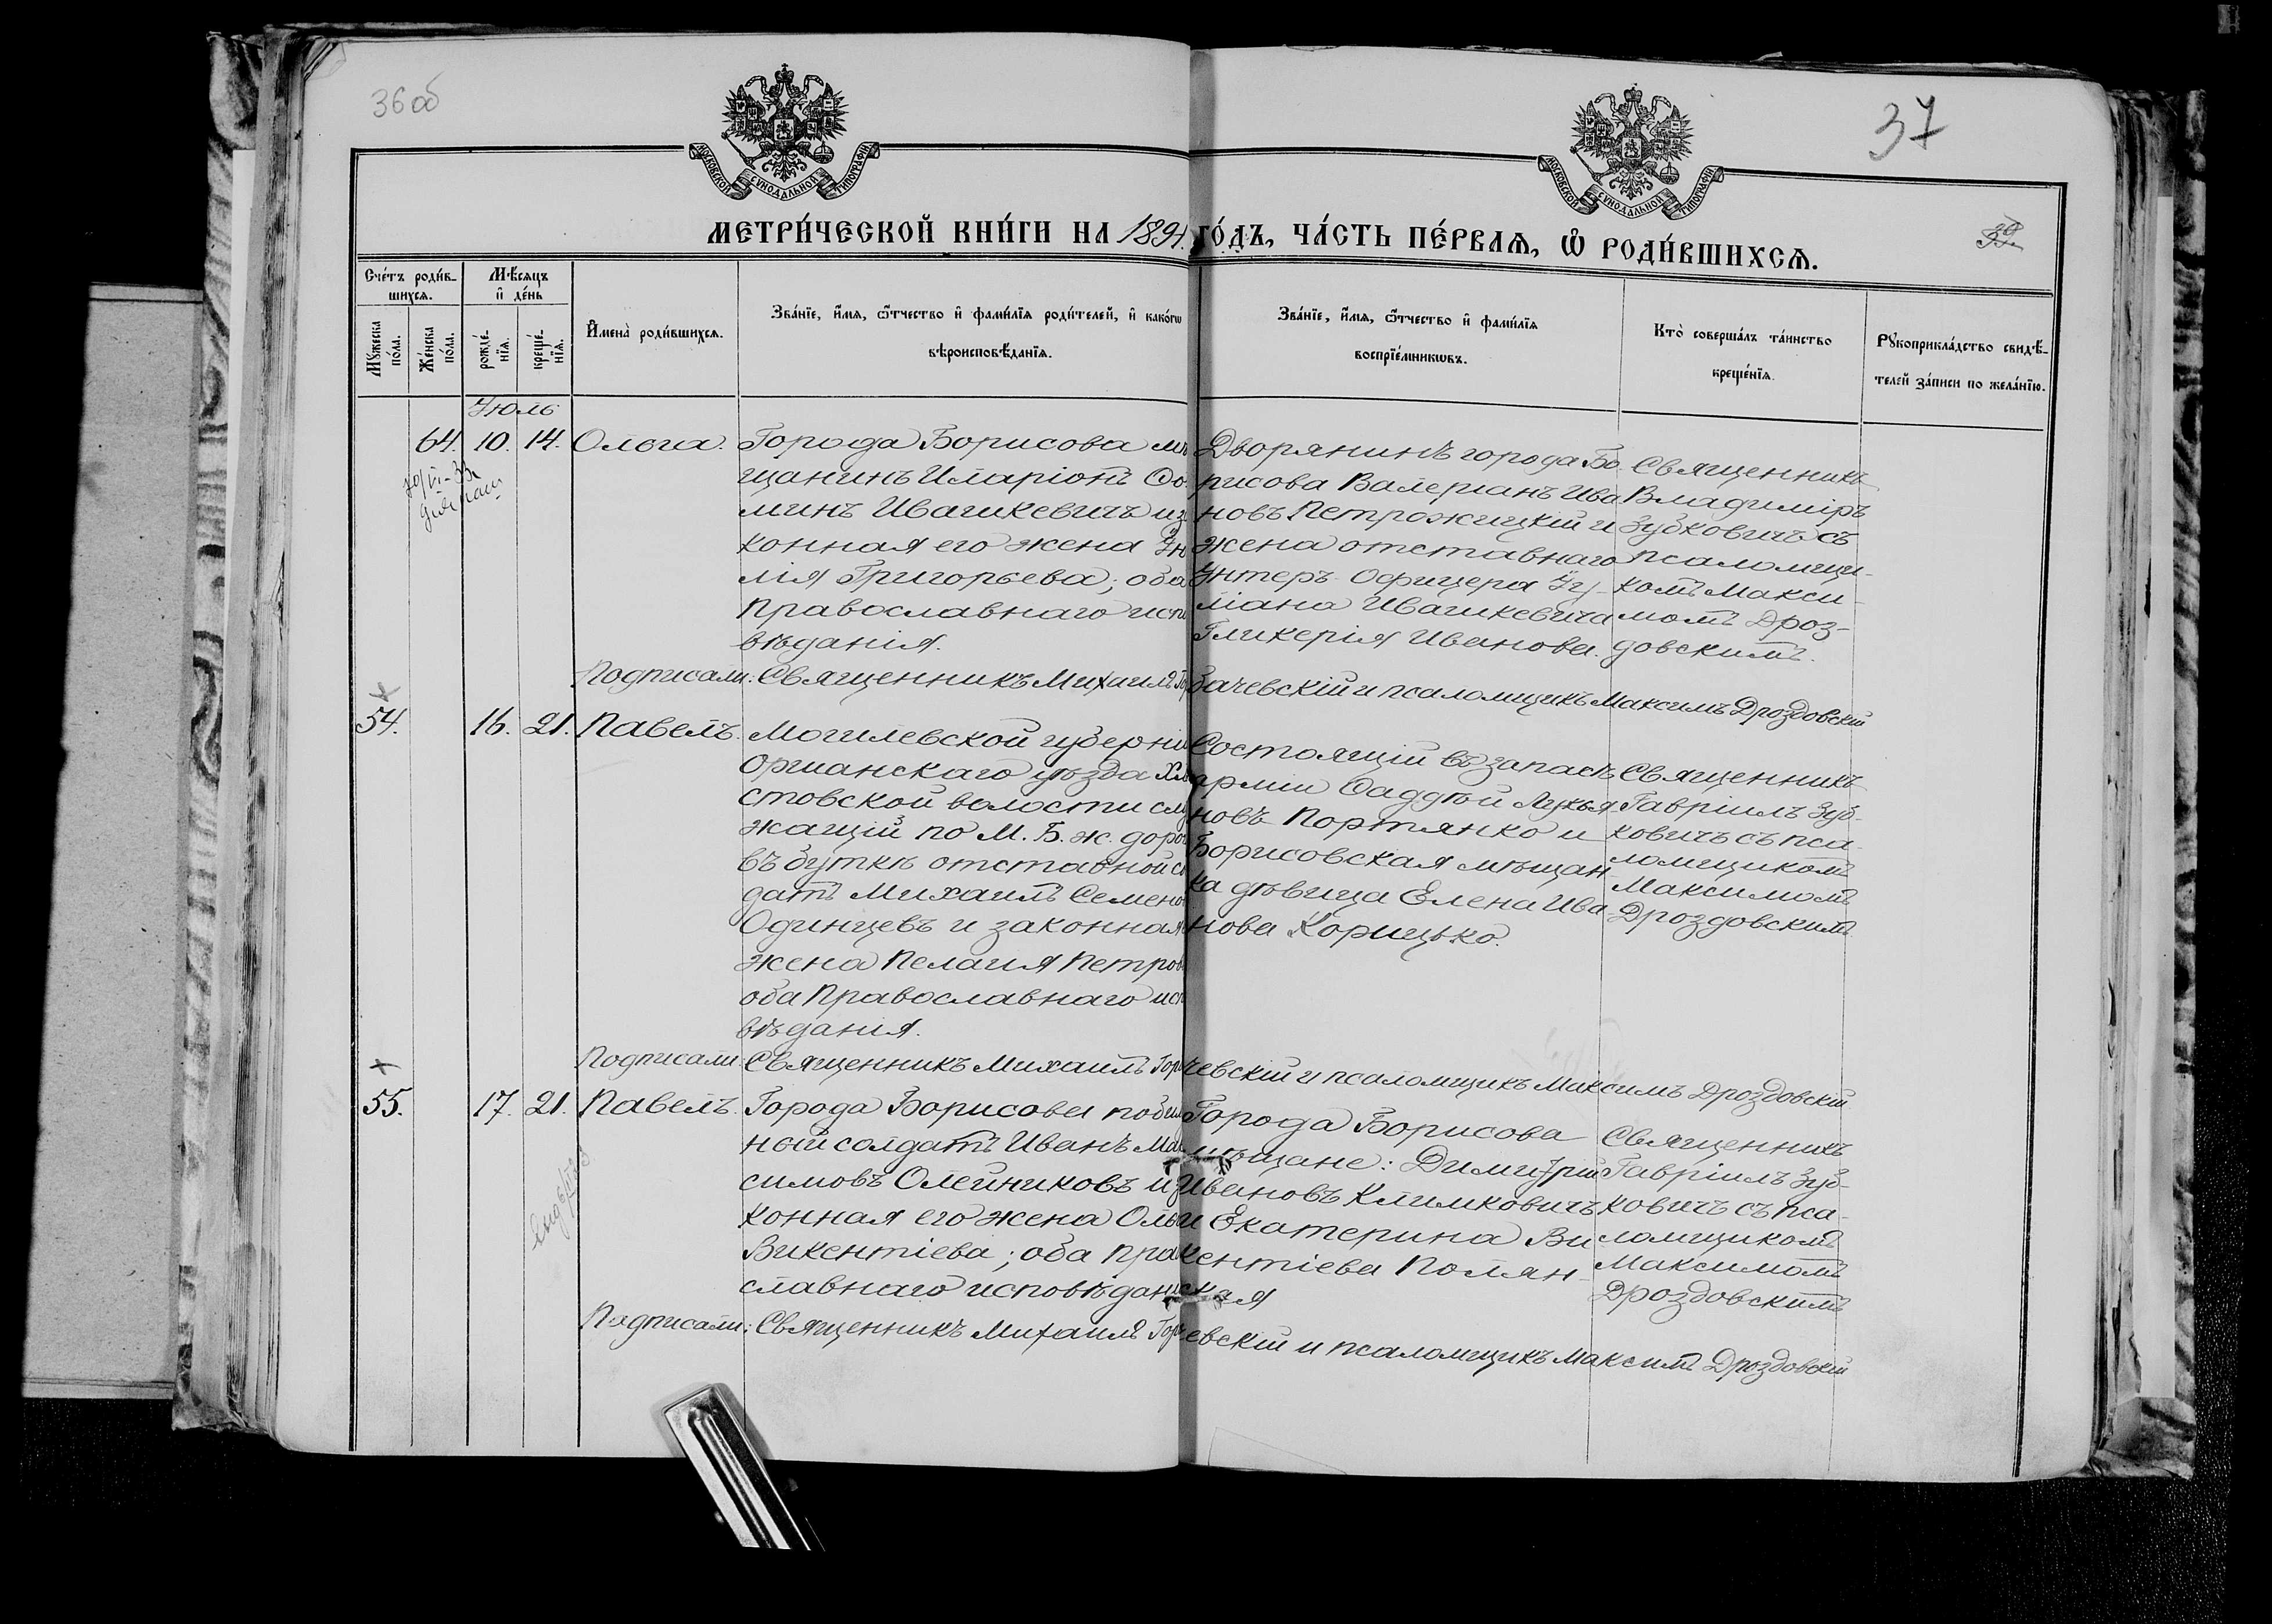 36 об
37
МОСКОВСКОЙ СУНОДАЛЬНОЙ ТИПОГРАФІИ
МОСКОВСКОЙ СУНОДАЛЬНОЙ ТИПОГРАФІИ
МЕТРИ́ЧЕСКОЙ КНИ́ГИ НА 1894. ГО́ДЪ, ЧА́СТЬ ПЕ́РВАѦ, Ѽ РОДИ́ВШИХСѦ.
Сче́тъ роди́в-
шихсѧ.
Мꙋ́жеска по́ла.
Же́нска по́ла.
Мѣ́сяцъ и҆ де́нь
рожде́-
нїѧ.
креще́-
нїѧ.
И҆мена̀ роди́вшихсѧ.
Зва́нїе, и҆́мѧ, ѻ҆́тчество и҆ фами́лїѧ роди́телей, и҆ како́гѡ
вѣроисповѣ́данїѧ.
Зва́нїе, и҆́мѧ, ѻ҆́тчество и҆ фами́лїѧ
воспрїе́мникѡвъ.
Кто̀ соверша́лъ та́инство
креще́нїѧ.
Рꙋкоприкла́дство свидѣ́-
телей за́писи по жела́нїю.
Іюль
64. 10. 14. Ольга.
Города Борисова мѣ
щанинъ Иларіонъ Ѳо
минъ Ивашкевичъ и за
конная его жена Іу
лія Григорьева; оба
Православнаго испо
вѣданія.
Дворянинъ города Бо
рисова Валеріанъ Ива
новъ Петрожицкій и
жена отставнаго
Унтеръ-Офицера
Ивашкевича
Гликерія Иванова.
Священникъ
Владиміръ
Зубковичъ съ
псаломщи-
комъ Макси-
момъ Дроз-
довскимъ.
Подписали: Священникъ Михаилъ Горбачевскій и псаломщикъ Максимъ Дроздовскій
54. 16. 21. Павелъ.
Могилевской губерніи
Оршанскаго уѣзда
стовской волости слу
жащій по М. Б. ж. дорог
въ буткѣ отставной сол
датъ Михаилъ Семенов
Одинцевъ и законная
жена Пелагія Петров
оба Православнаго исп
вѣданія.
Состоящій въ запасѣ
арміи Ѳаддѣй Лукья
новъ Портянко и
Борисовская мѣщан
ка дѣвица Елена Ива
нова Корицько.
Священникъ
Гавріилъ Зуб-
ковичъ съ пса-
ломщикомъ
Максимомъ
Дроздовскимъ
Подписали: Священникъ Михаилъ Горбачевскій и псаломщикъ Максимъ Дроздовскій
55. 17. 21. Павелъ.
Города Борисова
ный солдатъ Иванъ Мак
симовъ Олейниковъ и за
конная его жена Ольга
Викентіева; оба Право
славнаго исповѣданія
Города Борисова
мѣщане: Димитрій
Ивановъ Климковичъ
и Екатерина Ви
кентіева Полян-
ская
Священникъ
Гавріилъ Зуб-
ковичъ съ пса-
ломщикомъ
Максимомъ
Дроздовскимъ
Подписали: Священникъ Михаилъ Горбачевскій и псаломщикъ Максимъ Дроздовскій